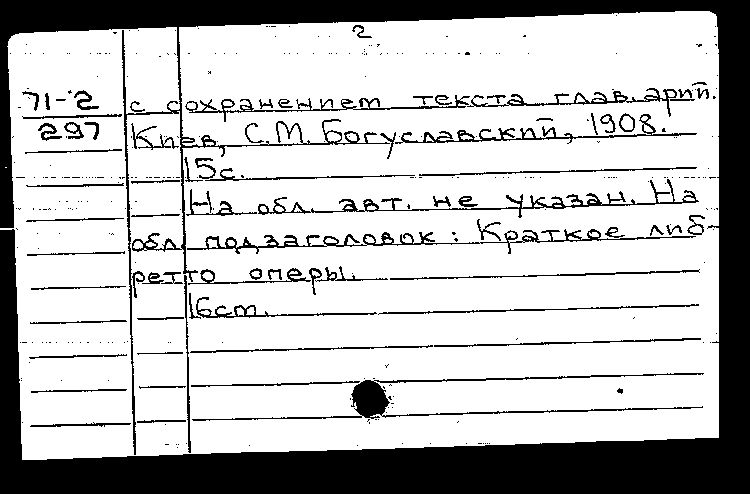 2
71-2 с сохранением текста глав. арий.
297 Киев, С.М. Богуславский, 1908.
15с.
На обл. авт. не указан. На
обл. подзаголовок: Краткое либ-
ретто оперы.
16cm.